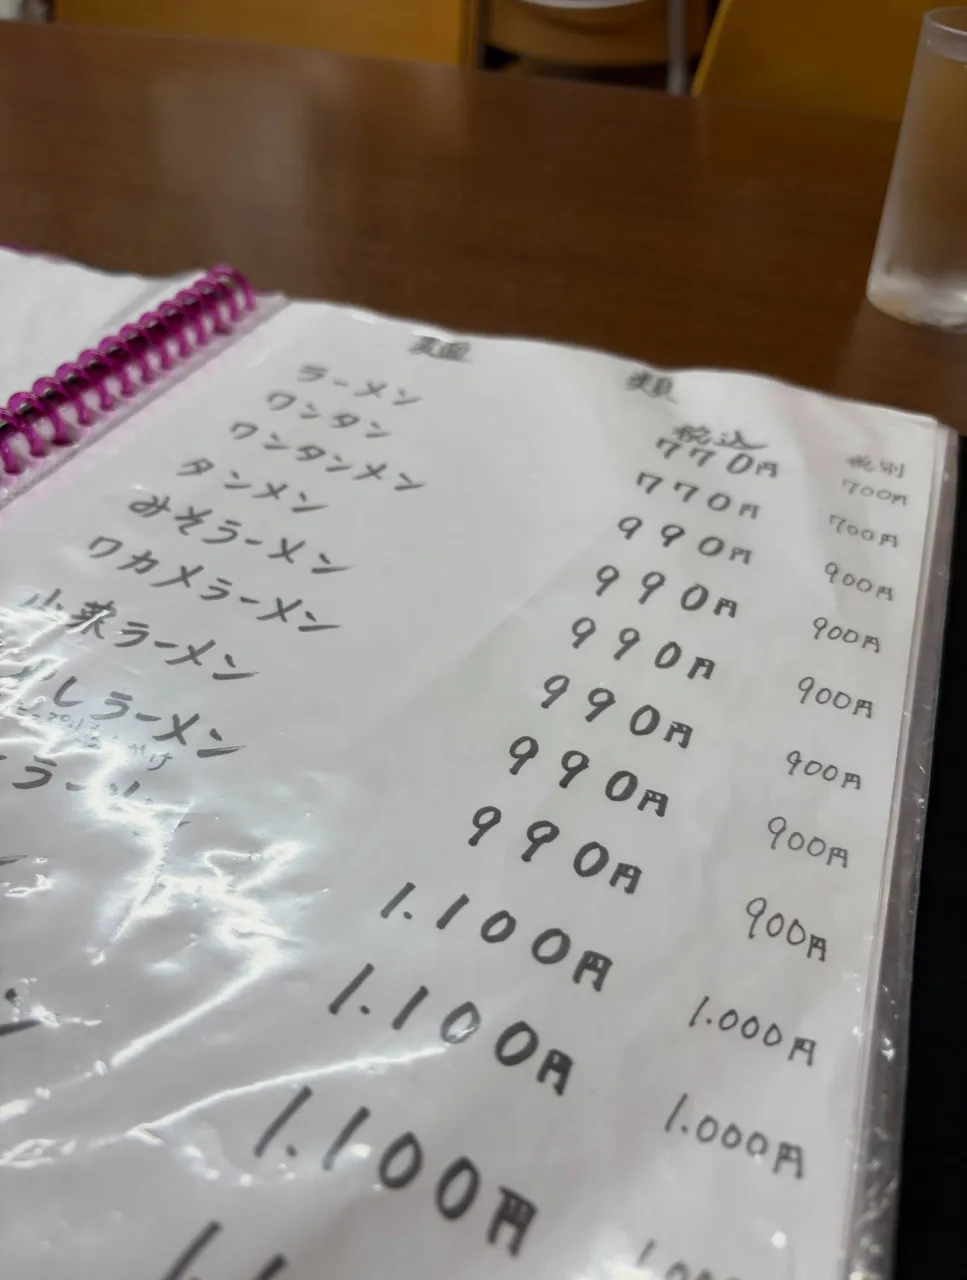 麺類
税込 税別
ラーメン 770円 700円
ワンタン 770円 700円
ワンタンメン 990円 900円
タンメン 990円 900円
みそラーメン 990円 900円
ワカメラーメン 990円 900円
ラーメン 990円 900円
しラーメン 990円 900円
ラーメン 1.100円 1.000円
1.100円 1.000円
1.100円